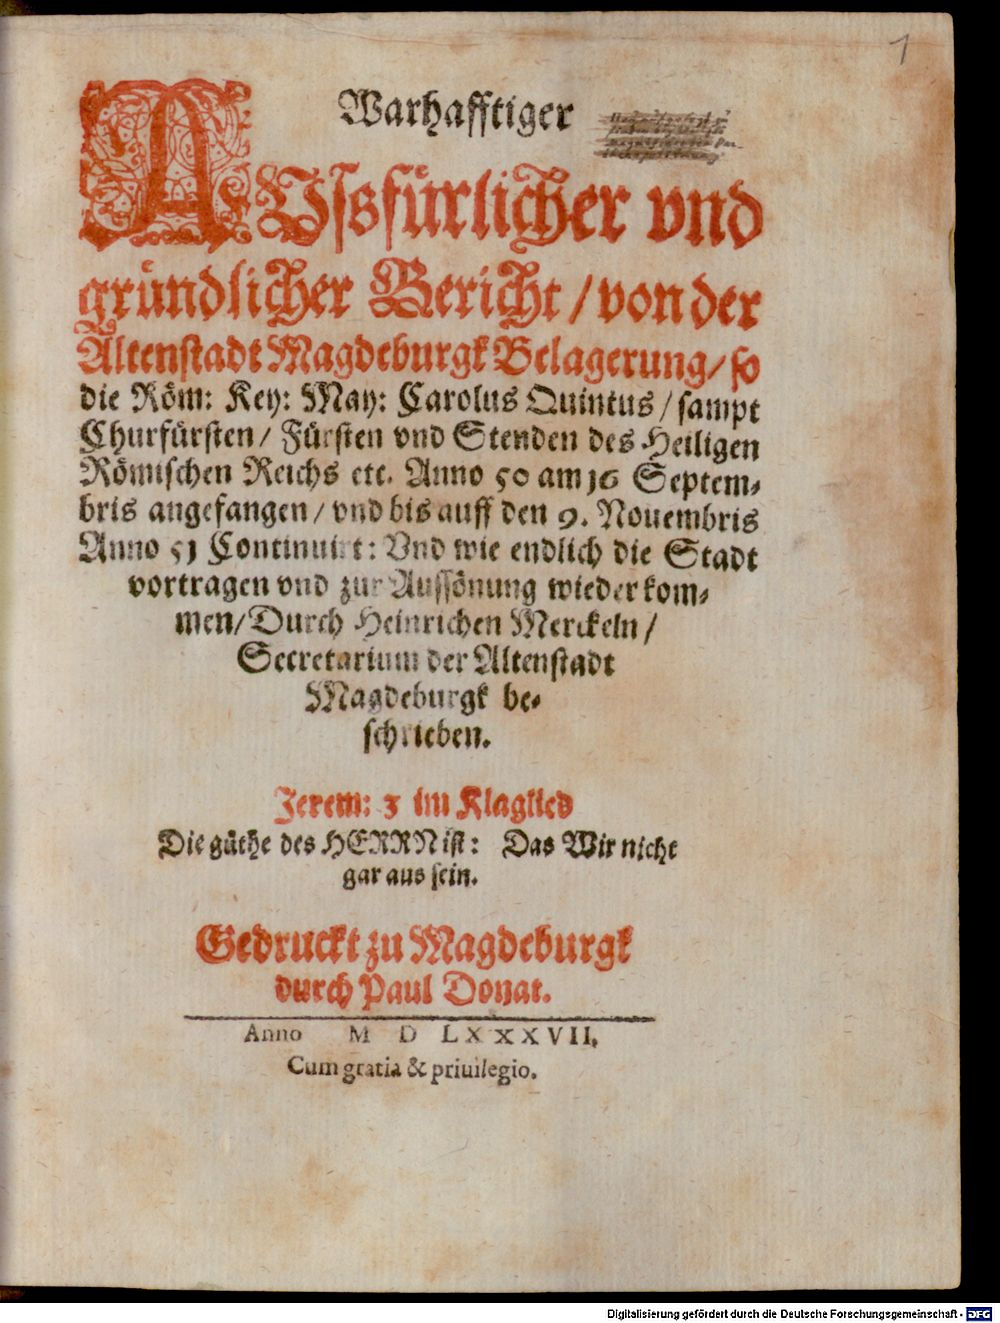 1
Warhafftiger
AVsßfürlicher vnd
gründlicher Bericht / von der
Altenstadt Magdeburgk Belagerung / so
die Röm: Key: May: Carolus Quintus / sampt
Churfürsten / Fürsten vnd Stenden des Heiligen
Römischen Reichs etc. Anno 50 am 16 Septem⸗
bris angefangen / vnd bis auff den 9. Nouembris
Anno 51 Continuirt: Vnd wie endlich die Stadt
vortragen vnd zur Aussönung wieder kom⸗
men / Durch Heinrichen Merckeln /
Secretarium der Altenstadt
Magdeburgk be⸗
schrieben.
Jerem: 3 im Klaglied
Die güthe des HERRN ist: Das Wir nicht
gar aus sein.
Gedruckt zu Magdeburgk
durch Paul Donat.
Anno M D LXXXVII.
Cum gratia & priuilegio.
Digitalisierung gefördert durch die Deutsche Forschungsgemeinschaft - DFG